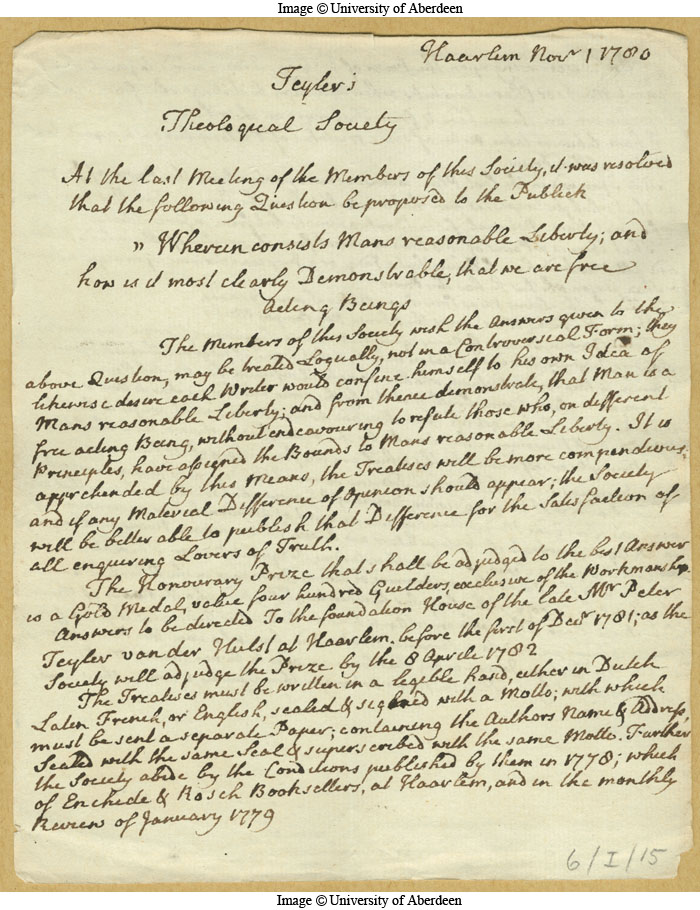 Image © University of Aberdeen
Haarlem Novr 1 1780
Teyler's
Theological Society
At the last Meeting of the Members of this Society, it was resolved
that the following Question be proposed to the Publick
" Wherein consists Mans reasonable Liberty; and
how is it most clearly Demonstrable, that we are free
acting Beings
The Members of this Society wish the Answers given to the
above Question, may be treated Logically, not in a Controversial Form; they
likewise desire each Writer would confine himself to his own Idea of
Mans reasonable Liberty; and from thence demonstrate, that Man is a
free acting Being, without endeavouring to refute those who, on different
Principles, have assigned the Bounds to Mans reasonable Liberty. It is
apprehended by this Means, the Treatises will be more compendious;
and if any Material Difference of Opinion should appear; the Society
will be better able to publish that Difference for the Satisfaction of
all enquiring Lovers of Truth.
The Honourary Prize that shall be adjudged to the best Answer
is a Gold Medal, value four hundred Guilders, exclusive of the Workmanship
Answers to be directed To the foundation House of the late Mr Peter
Teyler van der Hulst at Haarlem, before the first of Decr 1781; as the
Society will adjudge the Prize by the 8 Aprile 1782
The Treatises must be written in a legible hand, either in Dutch
Laten French, or English, sealed & signed with a Motto; with which
must be sent a separate Paper; containing the Authors Name & Address,
Sealed with the same Seal & superscribed with the same Motto. Further
the Society abide by the Conditions published by them in 1778; which
of Enchede & Bosch Booksellers, at Haarlem, and in the monthly
Review of January 1779
6/I/15
Image © University of Aberdeen